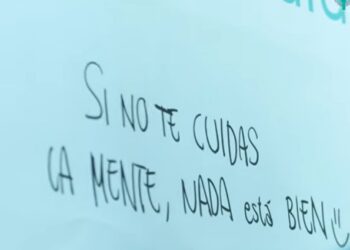 SI NO TE CUIDAS
LA MENTE, NADA está BIEN